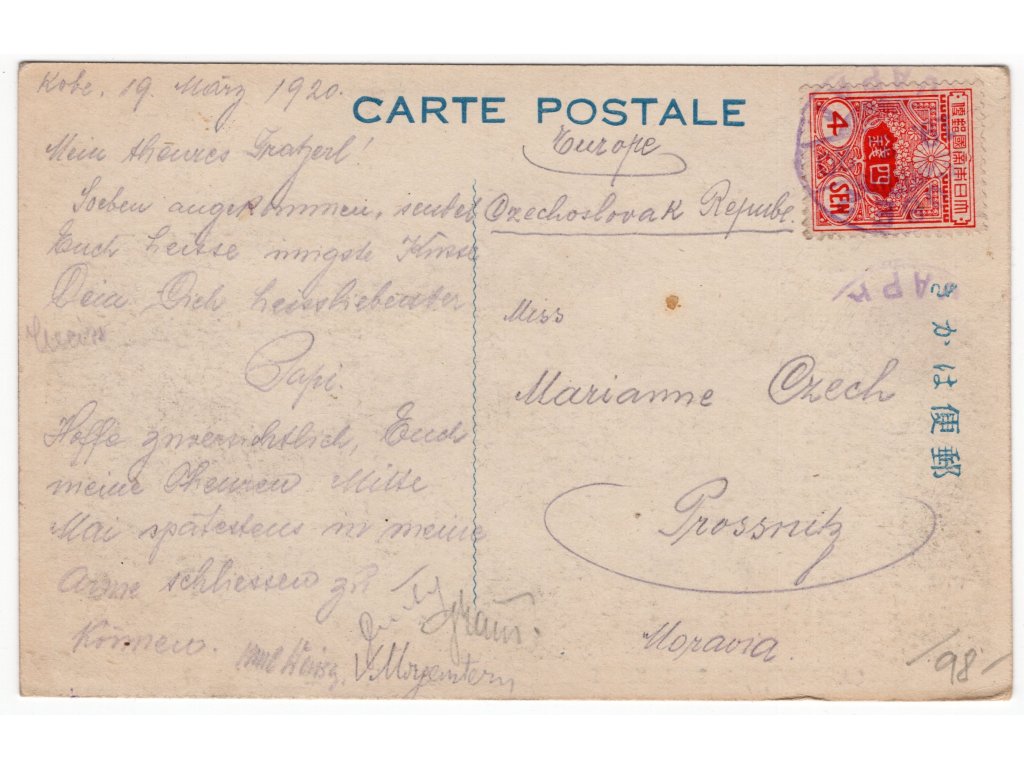 Kobe, 19. März 1920.
CARTE POSTALE
Mein theures Fratzerl!
Soeben angekommen, sendet
Euch heisse innigste Küsse
Dein Dich heissliebender
Papi.
Hoffe zuversichtlich, Euch
meine Theuren Mitte
Mai spätestens in meine
Arme schliessen zu
können.
Morgenstern
Europe
Czechoslovak Repube.
Miss
Marianne Czech
Prossnitz
Moravia.
大日本帝國郵便
4 四錢 SEN
郵便はかき
/98/